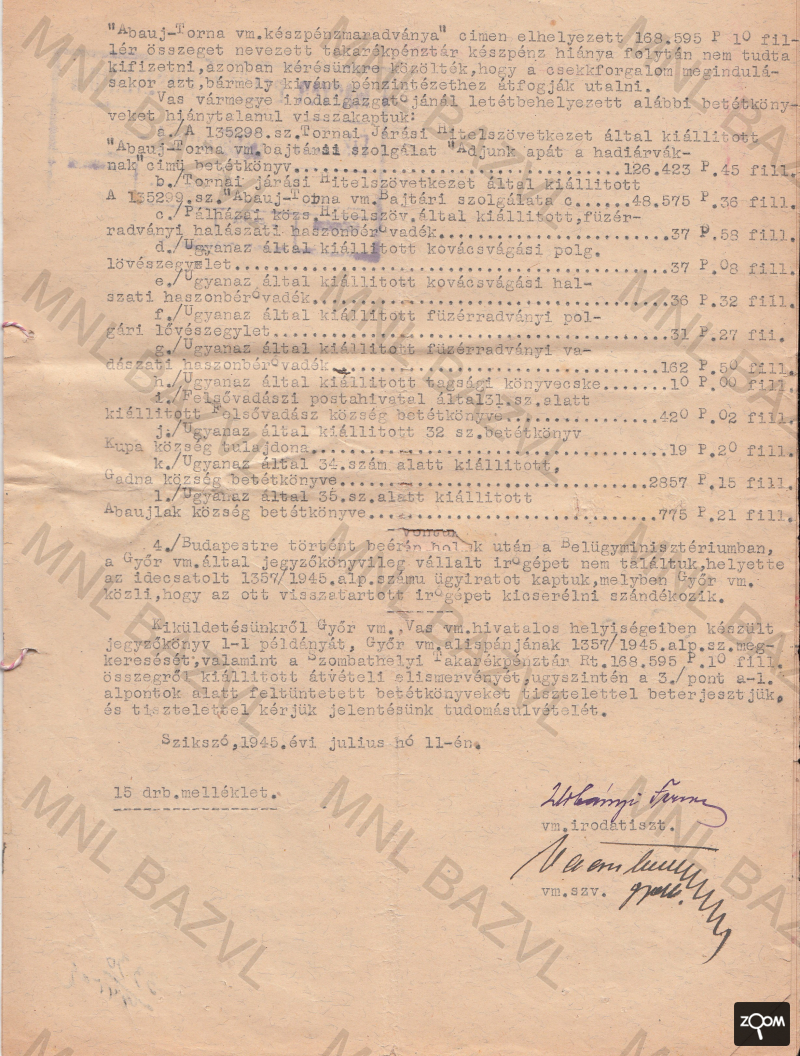 "Abauj-Torna vm.készpénzmaradványa" cimen elhelyezett 168.595 P 10 fil-
lér összeget nevezett takarékpénztár készpénz hiánya folytán nem tudta
kifizetni,azonban kérésünkre közölték,hogy a csekkforgalom megindulá-
sakor azt,bármely kivánt pénzintézethez átfogják utalni.
Vas vármegye irodaigazgatójánál letétbehelyezett alábbi betétköny-
veket hiánytalanul visszakaptuk:
a./A 135298.sz.Tornai Járási Hitelszövetkezet által kiállitott
"Abauj-Torna vm.bajtársi szolgálat "Adjunk apát a hadiárvák-
nak"cimü betétkönyv........................................126.423 P.45 fill.
b./Tornai járási Hitelszövetkezet által kiállitott
A 135299.sz."Abauj-Torna vm.Bajtári szolgálata c......48.575 P.36 fill.
c./Pálházai közs.Hitelszöv.által kiállitott,füzér-
radványi halászati haszonbéróvadék............................37 P.58 fill.
d./Ugyanaz által kiállitott kovácsvágási polg.
lövészegyelet.................................................37 P.08 fill.
e./Ugyanaz által kiállitott kovácsvágási hal-
szati haszonbéróvadék.........................................36 P.32 fill.
f./Ugyanaz által kiállitott füzérradványi pol-
gári lővészegylet.............................................31 P.27 fii.
g./Ugyanaz által kiállitott füzérradványi va-
dászati haszonbéróvadék......................................162 P.50 fill.
h./Ugyanaz által kiállitott tagsági könyvecske.......10 P.00 fill.
i./Felsővadászi postahivatal által31.sz.alatt
kiállitott Felsővadász község betétkönyve................420 P.02 fill.
j./Ugyanaz által kiállitott 32 sz.betétkönyv
Kupa község tulajdona.........................................19 P.20 fill.
k./Ugyanaz által 34.szám alatt kiállitott,
Gadna község betétkönyve....................................2857 P.15 fill.
l./Ugyanaz által 35.sz.alatt kiállitott
Abaujlak község betétkönyve..................................775 P.21 fill.
4./Budapestre történt beérésünk után a Belügyminisztériumban,
a Győr vm.által jegyzőkönyvileg vállalt irógépet nem találtuk,helyette
az idecsatolt 1357/1945.alp.számu ügyiratot kaptuk,melyben Győr vm.
közli,hogy az ott visszatartott irógépet kicserélni szándékozik.
Kiküldetésünkről Győr vm.,Vas vm.hivatalos helyiségeiben készült
jegyzőkönyv 1-1 példányát, Győr vm.alispánjának 1357/1945.alp.sz.meg-
keresését,valamint a Szombathelyi Takarékpénztár Rt.168.595 P.10 fill.
összegről kiállitott átvételi elismervényét,ugyszintén a 3./pont a-l.
alpontok alatt feltüntetett betétkönyveket tisztelettel beterjesztjük,
és tisztelettel kérjük jelentésünk tudomásulvételét.
Szikszó,1945.évi julius hó 11-én.
15 drb.melléklet.
vm.irodatiszt.
vm.szv.
MNL BAZVL
ZOOM